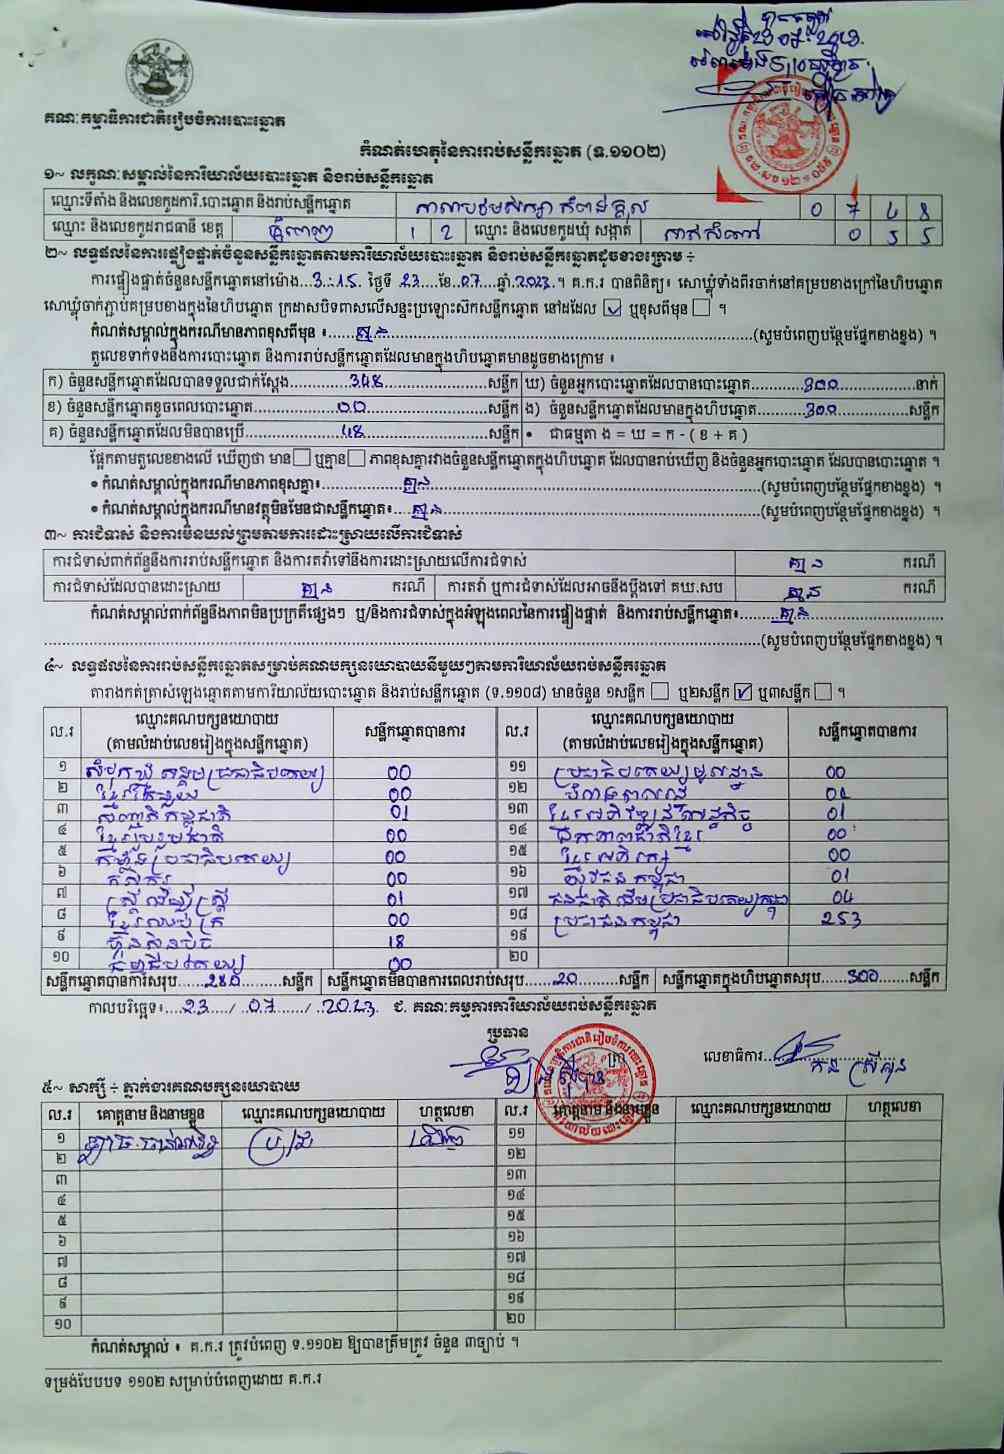 គណៈកម្មាធិការជាតិរៀបចំការបោះឆ្នោត
កំណត់ហេតុនៃការរាប់សន្លឹកឆ្នោត (ទ.១១០២)
១~ លក្ខណៈសម្គាល់នៃការិយាល័យបោះឆ្នោត និងរាប់សន្លឹកឆ្នោត
ឈ្មោះទីតាំង និងលេខកូដការិ.បោះឆ្នោត និងរាប់សន្លឹកឆ្នោត 0 7 4 8
ឈ្មោះ និងលេខកូដរាជធានី ខេត្ត ភ្នំពេញ 1 2 ឈ្មោះ និងលេខកូដឃុំ សង្កាត់ 0 5 5
២~ លទ្ធផលនៃការផ្ទៀងផ្ទាត់ចំនួនសន្លឹកឆ្នោតតាមការិយាល័យបោះឆ្នោត និងរាប់សន្លឹកឆ្នោតដូចខាងក្រោម ÷
ការផ្ទៀងផ្ទាត់ចំនួនសន្លឹកឆ្នោតនៅម៉ោង 3:15 ថ្ងៃទី 23 ខែ 07 ឆ្នាំ 2023 ។ គ.ក.រ បានពិនិត្យ៖ សោឃ្លុំទាំងពីរចាក់នៅគម្របខាងក្រៅនៃហិបឆ្នោត
សោឃ្លុំចាក់ភ្ជាប់គម្របខាងក្នុងនៃហិបឆ្នោត ក្រដាសបិទពាសលើសន្ទះប្រឡោះស៊កសន្លឹកឆ្នោត នៅដដែល ☑ ឬខុសពីមុន ☐ ។
កំណត់សម្គាល់ក្នុងករណីមានភាពខុសពីមុន ៖ គ្មាន (សូមបំពេញបន្ថែមផ្នែកខាងខ្នង) ។
តួលេខទាក់ទងនឹងការបោះឆ្នោត និងការរាប់សន្លឹកឆ្នោតដែលមានក្នុងហិបឆ្នោតមានដូចខាងក្រោម ៖
ក) ចំនួនសន្លឹកឆ្នោតដែលបានទទួលជាក់ស្តែង 348 សន្លឹក ឃ) ចំនួនអ្នកបោះឆ្នោតដែលបានបោះឆ្នោត 300 នាក់
ខ) ចំនួនសន្លឹកឆ្នោតខូចពេលបោះឆ្នោត 00 សន្លឹក ង) ចំនួនសន្លឹកឆ្នោតដែលមានក្នុងហិបឆ្នោត 300 សន្លឹក
គ) ចំនួនសន្លឹកឆ្នោតដែលមិនបានប្រើ 48 សន្លឹក • ជាធម្មតា ង = ឃ = ក - ( ខ + គ )
ផ្អែកតាមតួលេខខាងលើ ឃើញថា មាន ☐ ឬគ្មាន ☐ ភាពខុសគ្នារវាងចំនួនសន្លឹកឆ្នោតក្នុងហិបឆ្នោត ដែលបានរាប់ឃើញ និងចំនួនអ្នកបោះឆ្នោត ដែលបានបោះឆ្នោត ។
• កំណត់សម្គាល់ក្នុងករណីមានភាពខុសគ្នា៖ គ្មាន (សូមបំពេញបន្ថែមផ្នែកខាងខ្នង) ។
• កំណត់សម្គាល់ក្នុងករណីមានវត្ថុមិនមែនជាសន្លឹកឆ្នោត៖ គ្មាន (សូមបំពេញបន្ថែមផ្នែកខាងខ្នង) ។
៣~ ការជំទាស់ និងការមិនយល់ព្រមតាមការដោះស្រាយលើការជំទាស់
ការជំទាស់ពាក់ព័ន្ធនឹងការរាប់សន្លឹកឆ្នោត និងការតវ៉ាទៅនឹងការដោះស្រាយលើការជំទាស់ គ្មាន ករណី
ការជំទាស់ដែលបានដោះស្រាយ គ្មាន ករណី ការតវ៉ា ឬការជំទាស់ដែលអាចនឹងប្តឹងទៅ គឃ.សប គ្មាន ករណី
កំណត់សម្គាល់ពាក់ព័ន្ធនឹងភាពមិនប្រក្រតីផ្សេងៗ ឬ/និងការជំទាស់ក្នុងអំឡុងពេលនៃការផ្ទៀងផ្ទាត់ និងការរាប់សន្លឹកឆ្នោត៖ គ្មាន
(សូមបំពេញបន្ថែមផ្នែកខាងខ្នង) ។
៤~ លទ្ធផលនៃការរាប់សន្លឹកឆ្នោតសម្រាប់គណបក្សនយោបាយនីមួយៗតាមការិយាល័យរាប់សន្លឹកឆ្នោត
តារាងកត់ត្រាសំឡេងឆ្នោតតាមការិយាល័យបោះឆ្នោត និងរាប់សន្លឹកឆ្នោត (ទ.១១០៨) មានចំនួន ១សន្លឹក ☐ ឬ២សន្លឹក ☑ ឬ៣សន្លឹក ☐ ។
ល.រ ឈ្មោះគណបក្សនយោបាយ (តាមលំដាប់លេខរៀងក្នុងសន្លឹកឆ្នោត) សន្លឹកឆ្នោតបានការ ល.រ ឈ្មោះគណបក្សនយោបាយ (តាមលំដាប់លេខរៀងក្នុងសន្លឹកឆ្នោត) សន្លឹកឆ្នោតបានការ
១ សំបុកឃ្មុំសង្គមប្រជាធិបតេយ្យ 00 ១១ ប្រជាធិបតេយ្យមូលដ្ឋាន 00
២ 00 ១២
៣ សញ្ជាតិកម្ពុជា 01 ១៣ ខ្មែរអភិវឌ្ឍន៍សេដ្ឋកិច្ច 01
៤ ខ្មែររួបរួមជាតិ 00 ១៤ ឯកភាពជាតិខ្មែរ 00
៥ កម្លាំងប្រជាធិបតេយ្យ 00 ១៥ ខ្មែរអភិរក្ស 00
៦ កសិករ 00 ១៦ យុវជនកម្ពុជា 01
៧ ស្ត្រីដើម្បីស្ត្រី 01 ១៧ ជនជាតិដើមប្រជាធិបតេយ្យកម្ពុជា 04
៨ ខ្មែរឈប់ក្រ 00 ១៨ ប្រជាជនកម្ពុជា 253
៩ ហ្វ៊ុនស៊ិនប៉ិច 18 ១៩
១០ ធម្មាធិបតេយ្យ 00 ២០
សន្លឹកឆ្នោតបានការសរុប 280 សន្លឹក សន្លឹកឆ្នោតមិនបានការពេលរាប់សរុប 20 សន្លឹក សន្លឹកឆ្នោតក្នុងហិបឆ្នោតសរុប 300 សន្លឹក
កាលបរិច្ឆេទ៖ 23 / 07 / 2023 ជ. គណៈកម្មការការិយាល័យរាប់សន្លឹកឆ្នោត
ប្រធាន
លេខាធិការ
៥~ សាក្សី ÷ ភ្នាក់ងារគណបក្សនយោបាយ
ល.រ គោត្តនាម និងនាមខ្លួន ឈ្មោះគណបក្សនយោបាយ ហត្ថលេខា ល.រ គោត្តនាម និងនាមខ្លួន ឈ្មោះគណបក្សនយោបាយ ហត្ថលេខា
១ ១១
២ ១២
៣ ១៣
៤ ១៤
៥ ១៥
៦ ១៦
៧ ១៧
៨ ១៨
៩ ១៩
១០ ២០
កំណត់សម្គាល់ ៖ គ.ក.រ ត្រូវបំពេញ ទ.១១០២ ឱ្យបានត្រឹមត្រូវ ចំនួន ៣ច្បាប់ ។
ទម្រង់បែបបទ ១១០២ សម្រាប់បំពេញដោយ គ.ក.រ